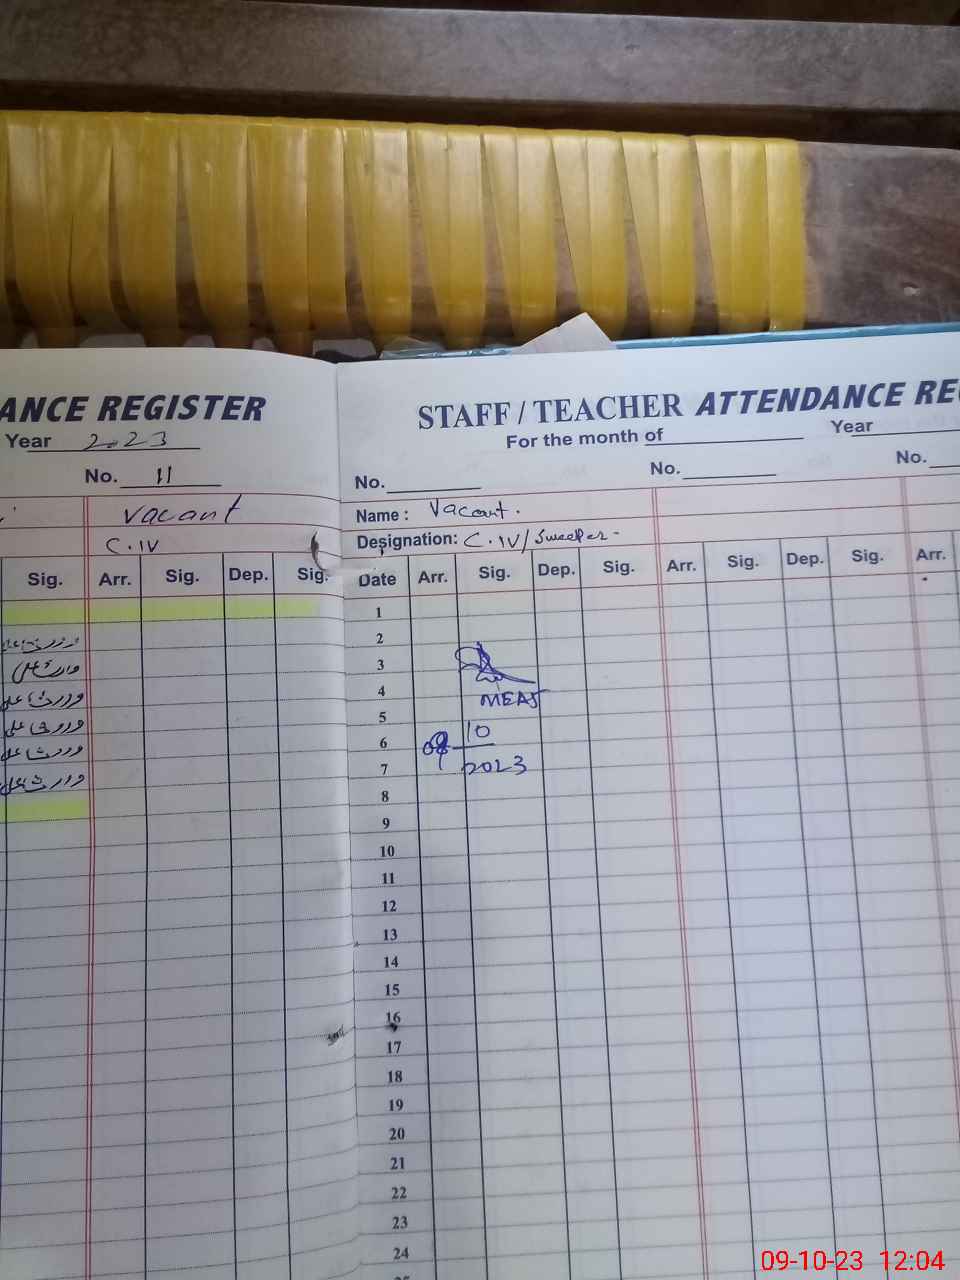 ANCE REGISTER
Year 2023
No. 11
Vacant
C.IV
Sig. Arr. Sig. Dep. Sig.
وارث علی
وارث علی
وارث علی
وارث علی
وارث علی
وارث علی
STAFF / TEACHER ATTENDANCE REG
For the month of Year
No. No. No.
Name : Vacant.
Designation: C.IV/Sweeper-
Date Arr. Sig. Dep. Sig. Arr. Sig. Dep. Sig. Arr.
1
2
3
4
MEAS
5
10
6
09
7
2023
8
9
10
11
12
13
14
15
16
17
18
19
20
21
22
23
24
09-10-23 12:04